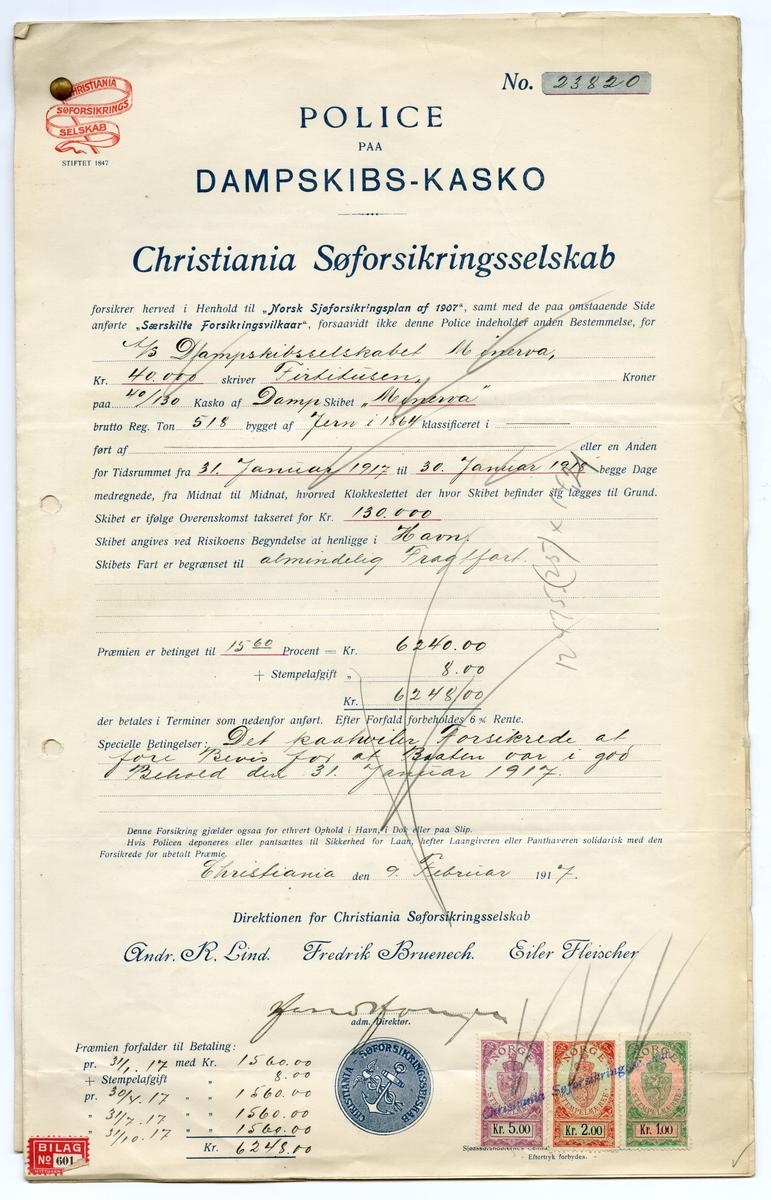 CHRISTIANIA
SØFORSIKRINGS
SELSKAB
STIFTET 1847
No. 23820
POLICE
PAA
DAMPSKIBS-KASKO
Christiania Søforsikringsselskab
forsikrer herved i Henhold til „Norsk Sjøforsikringsplan af 1907", samt med de paa omstaaende Side
anførte „Særskilte Forsikringsvilkaar", forsaavidt ikke denne Police indeholder anden Bestemmelse, for
A/S Dampskibsselskabet Minerva,
Kr. 40.000 skriver Firtitusen, Kroner
paa 40/130 Kasko af Damp Skibet „Minerva"
brutto Reg. Ton 518 bygget af Jern i 1864 klassificeret i
ført af eller en Anden
for Tidsrummet fra 31. Januar 1917 til 30. Januar 1918 begge Dage
medregnede, fra Midnat til Midnat, hvorved Klokkeslettet der hvor Skibet befinder sig lægges til Grund.
Skibet er ifølge Overenskomst takseret for Kr. 130.000
Skibet angives ved Risikoens Begyndelse at henligge i Havn.
Skibets Fart er begrænset til almindelig Fragtfart.
Præmien er betinget til 15 60 Procent = Kr. 6240.00
+ Stempelafgift „ 8.00
Kr. 6248.00
der betales i Terminer som nedenfor anført. Efter Forfald forbeholdes 6 % Rente.
Specielle Betingelser: Det paahviler Forsikrede at
føre Bevis for at Baaten var i god
Behold den 31. Januar 1917.
Denne Forsikring gjælder ogsaa for ethvert Ophold i Havn, i Dok eller paa Slip.
Hvis Policen deponeres eller pantsættes til Sikkerhed for Laan, hefter Laangiveren eller Panthaveren solidarisk med den
Forsikrede for ubetalt Præmie.
Christiania den 9. Februar 1917.
Direktionen for Christiania Søforsikringsselskab
Andr. R. Lind. Fredrik Bruenech. Eiler Fleischer
adm. Direktør.
Præmien forfalder til Betaling:
pr. 31/1. 17 med Kr. 1560.00
+ Stempelafgift „ 8.00
pr. 30/4. 17 „ 1560.00
„ 31/7. 17 „ 1560.00
„ 31/10. 17 „ 1560.00
Kr. 6248.00
CHRISTIANIA SØFORSIKRINGSSELSKAB
NORGE NORGE NORGE
STEMPELMÆRKE STEMPELMÆRKE STEMPELMÆRKE
Christiania Søforsikringsselskab
Kr. 5.00 Kr. 2.00 Kr. 1.00
Eftertryk forbydes.
BILAG
No 601